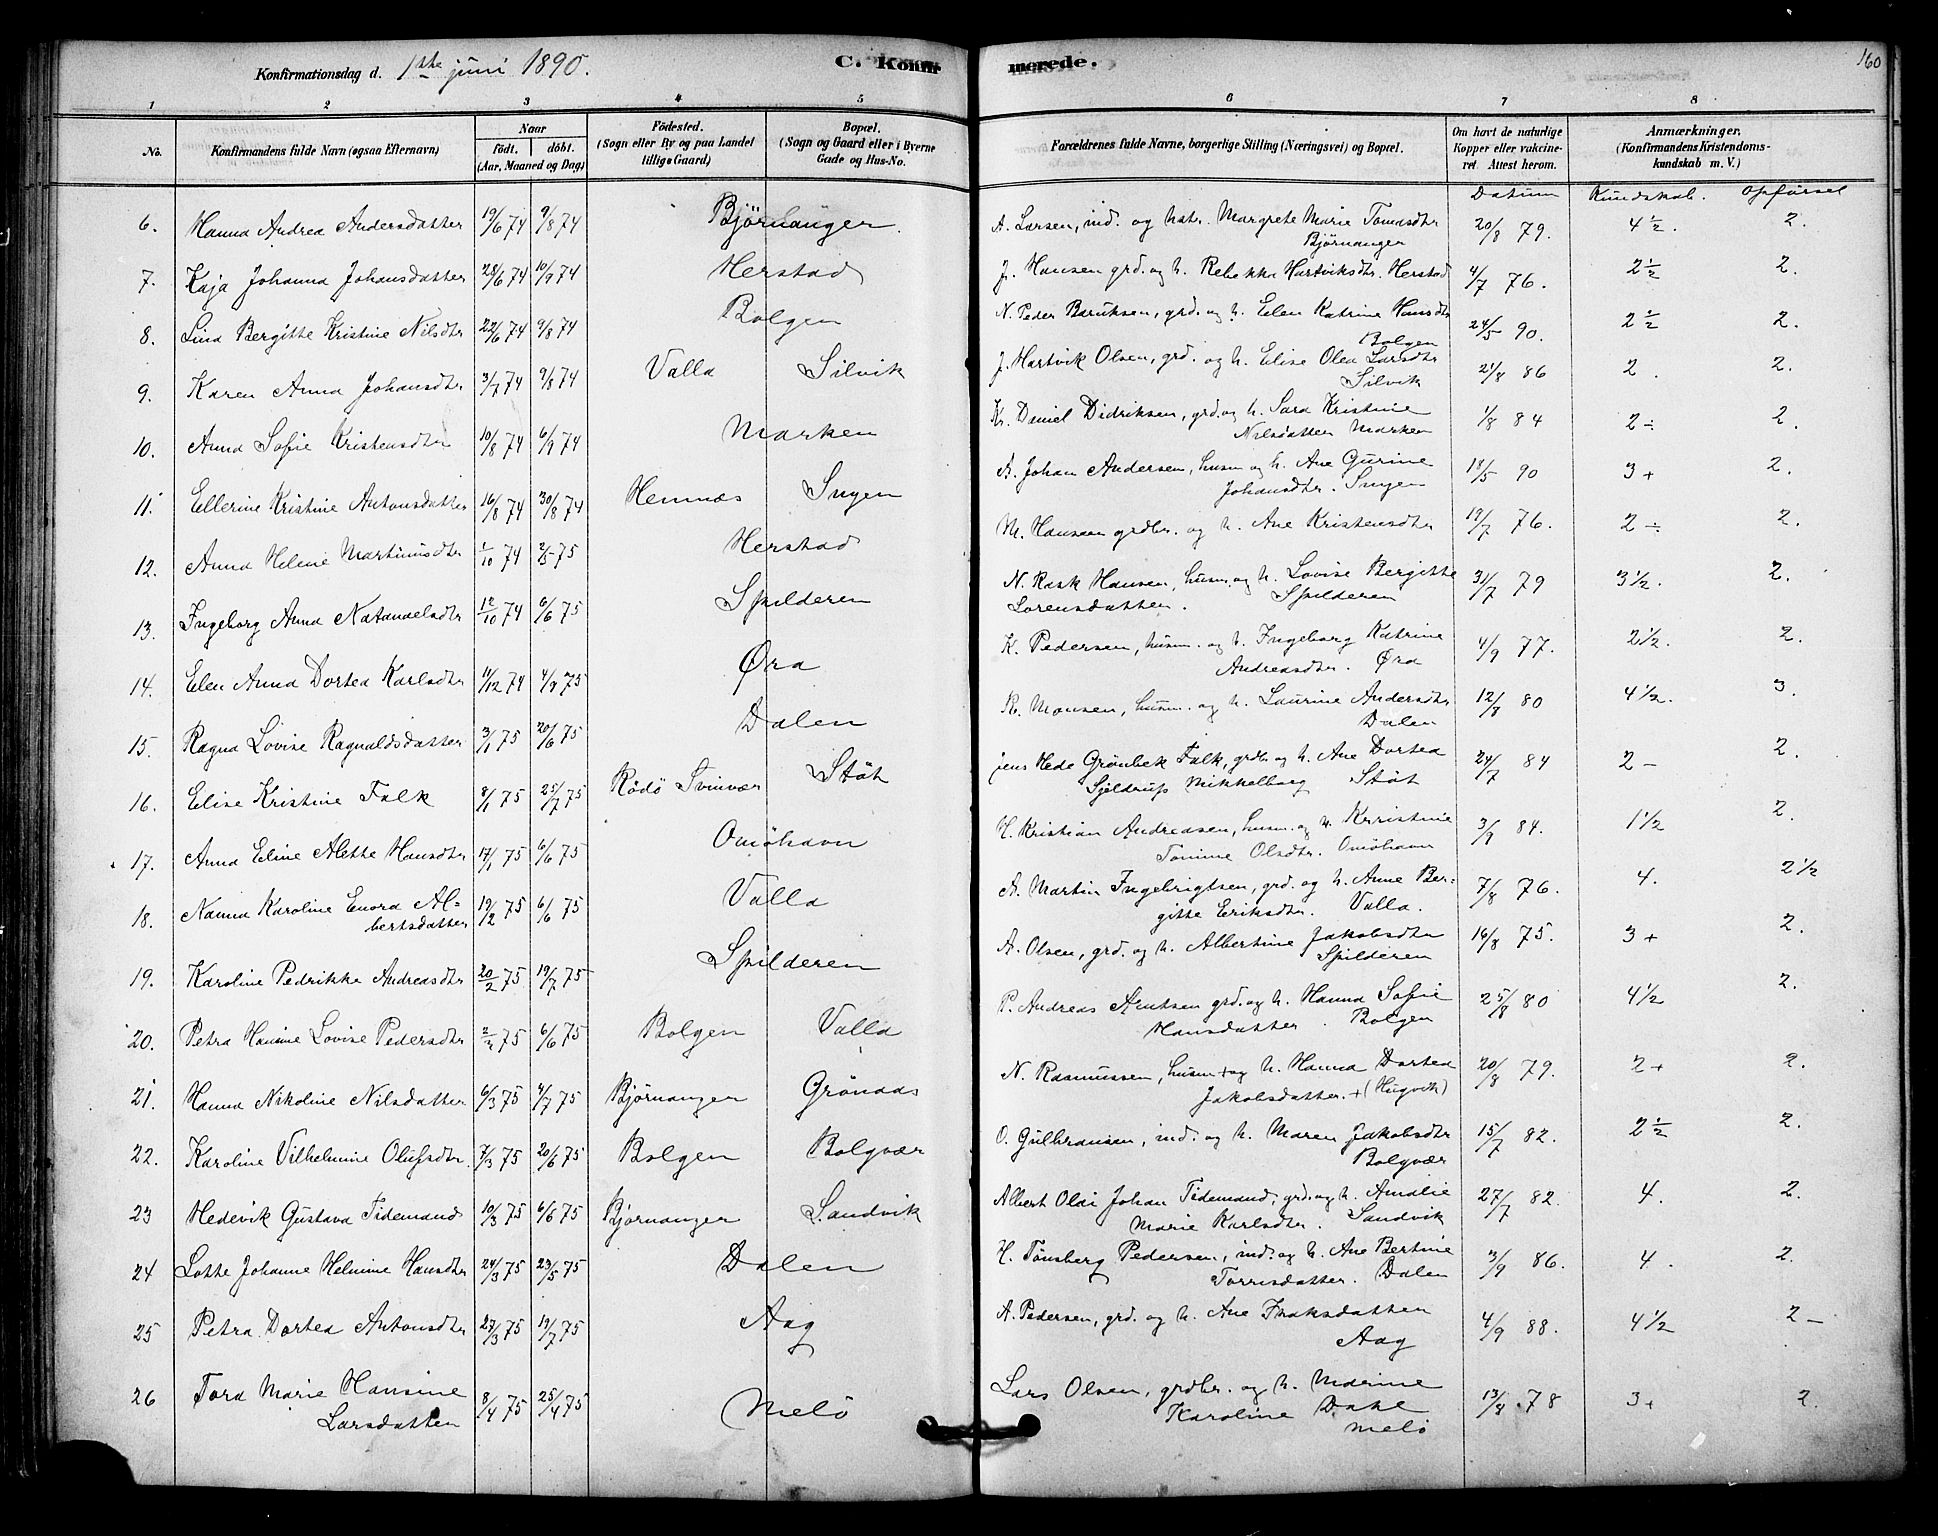 160
Konfirmationsdag d. 1ste juni 1890. C. Konfir merede.
1 2 3 4 5 6 7 8
No. Konfirmandens fulde Navn (ogsaa Efternavn) Naar født. døbt. (Aar, Maaned og Dag) Födested. (Sogn eller By og paa Landet tillige Gaard) Bopæl. (Sogn og Gaard eller i Byerne Gade og Hus-No. Forældrenes fulde Navne, borgerlige Stilling (Næringsvei) og Bopæl. Om havt de naturlige Kopper eller vakcineret. Attest herom. Anmærkninger. (Konfirmandens Kristendomskundskab m. V.)
Datum Kundskab. Opførsel
6. Hanna Andrea Andersdatter 19/6 74 9/8 74 Bjørnanger. A. Larsen, ind. og hstr. Margrete Marie Tomasdtr 20/8 79. 4 1/2. 2.
Bjørnanger
7. Kaja Johanna Johansdatter 28/6 74 10/9 74 Herstad J. Hansen grd. og h. Rebekka Hartviksdtr. Herstad 4/7 76. 2 1/2 2.
8. Lina Bergitte Kristine Nilsdtr 22/6 74 9/8 74 Bolgen N. Peder Baruksen, grd. og h. Elen Katrine Hansdtr 24/5 90. 2 1/2 2.
Bolgen
9. Karen Anna Johansdtr 3/7 74 9/8 74 Valla Silvik J. Hartvik Olsen, grd. og h. Elise Olea Larsdtr 21/8 86 2. 2.
Silvik
10. Anna Sofie Kristensdtr 10/8 74 6/9 74 Marken Kr. Daniel Didriksen, grd. og h. Sara Kristine 1/8 84 2 ÷ 2.
Nilsdatter Marken
11. Ellerine Kristine Antonsdatter 16/8 74 30/8 74 Hemnæs Sngen A. Johan Andersen, husm og h. Ane Gurine 18/5 90 3+ 2.
Johansdtr. Sngen
12. Anna Helene Martinusdtr 1/10 74 2/5 75 Herstad M. Hansen grdbr. og h. Ane Kristensdtr 19/7 76. 2 ÷ 2.
13. Ingeborg Anna Natanaelsdtr 12/10 74 6/6 75 Spilderen N. Rask Hansen, husm. og h. Lovise Bergitte 31/7 79 3 1/2. 2.
Lorensdatter. Spilderen
14. Elen Anna Dortea Karlsdtr 11/12 74 4/9 75 Øra K. Pedersen, husm. og h. Ingeborg Katrine 4/9 77. 2 1/2. 2.
Andreasdtr. Øra
15. Ragna Lovise Ragnaldsdatter 3/1 75 20/6 75 Dalen R. Monsen, husm. og h. Laurine Andersdtr 12/8 80 4 1/2. 3.
Dalen
16. Elise Kristine Falk 8/1 75 25/7 75 Rödö Svinvær Stöt jens Hede Grönbek Falk, grdb. og h. Ane Dortea 24/7 84 2 - 2.
Sjeldrup Mikkelborg Stöt
17. Anna Eline Alette Hansdtr 17/1 75 6/6 75 Omöhavn H. Kristian Andreasen, husm. og h. Krristine 3/9 84. 1 1/2 2.
Tomine Olsdtr. Omöhavn
18. Nanna Karoline Enora Al- 19/2 75 6/6 75 Valla A. Martin Ingebrigtsen, grd. og h. Anne Ber- 7/8 76. 4. 2 1/2
bertsdatter gitte Eriksdtr. Valla.
19. Karoline Pedrikke Andreasdtr 20/2 75 19/7 75 Spilderen A. Olsen, grd. og h. Albertine Jakobsdtr 16/8 75. 3+ 2.
Spilderen
20. Petra Hansine Lovise Pedersdtr 75 6/6 75 Bolgen Valla P. Andreas Arntsen grd. og h. Hanna Sofie 25/8 80 4 1/2 2.
Hansdatter. Bolgen
21. Hanna Nikoline Nilsdatter 6/3 75 4/7 75 Bjørnanger Grönaas N. Rasmussen, husm + og h. Hanna Dortea 20/8 79. 2+ 2.
Jakobsdatter. + (Hugvik)
22. Karoline Vilhelmine Olufsdtr. 7/3 75 20/6 75 Bolgen Bolgvær O. Gulbransen, ind. og h. Maren Jakobsdtr 15/7 82. 2 1/2 2.
Bolgvær
23 Hedevik Gustava Tidemand 10/3 75 6/6 75 Bjørnanger Sandvik Albert Olai Johan Tidemand, grd. og h. Amalie 27/7 82. 4. 2.
Marie Karlsdtr. Sandvik
24 Lotte Johanne Helmine Hansdtr 24/3 75 23/5 75 Dalen H. Tönsberg Pedersen, ind. og h. Ane Bertine 3/9 86. 4. 2.
Torrisdatter. Dalen
25 Petra Dortea Antonsdtr 27/3 75 19/7 75 Aag A. Pedersen, grd. og h. Ane Isaksdatter 4/9 88. 4 1/2 2 -
Aag
26 Tora Marie Hansine 8/4 75 25/4 75 Melö Lars Olsen, grdbr. og h. Marine 13/8 78 3+ 2.
Larsdatter Karoline Dahl
Melö